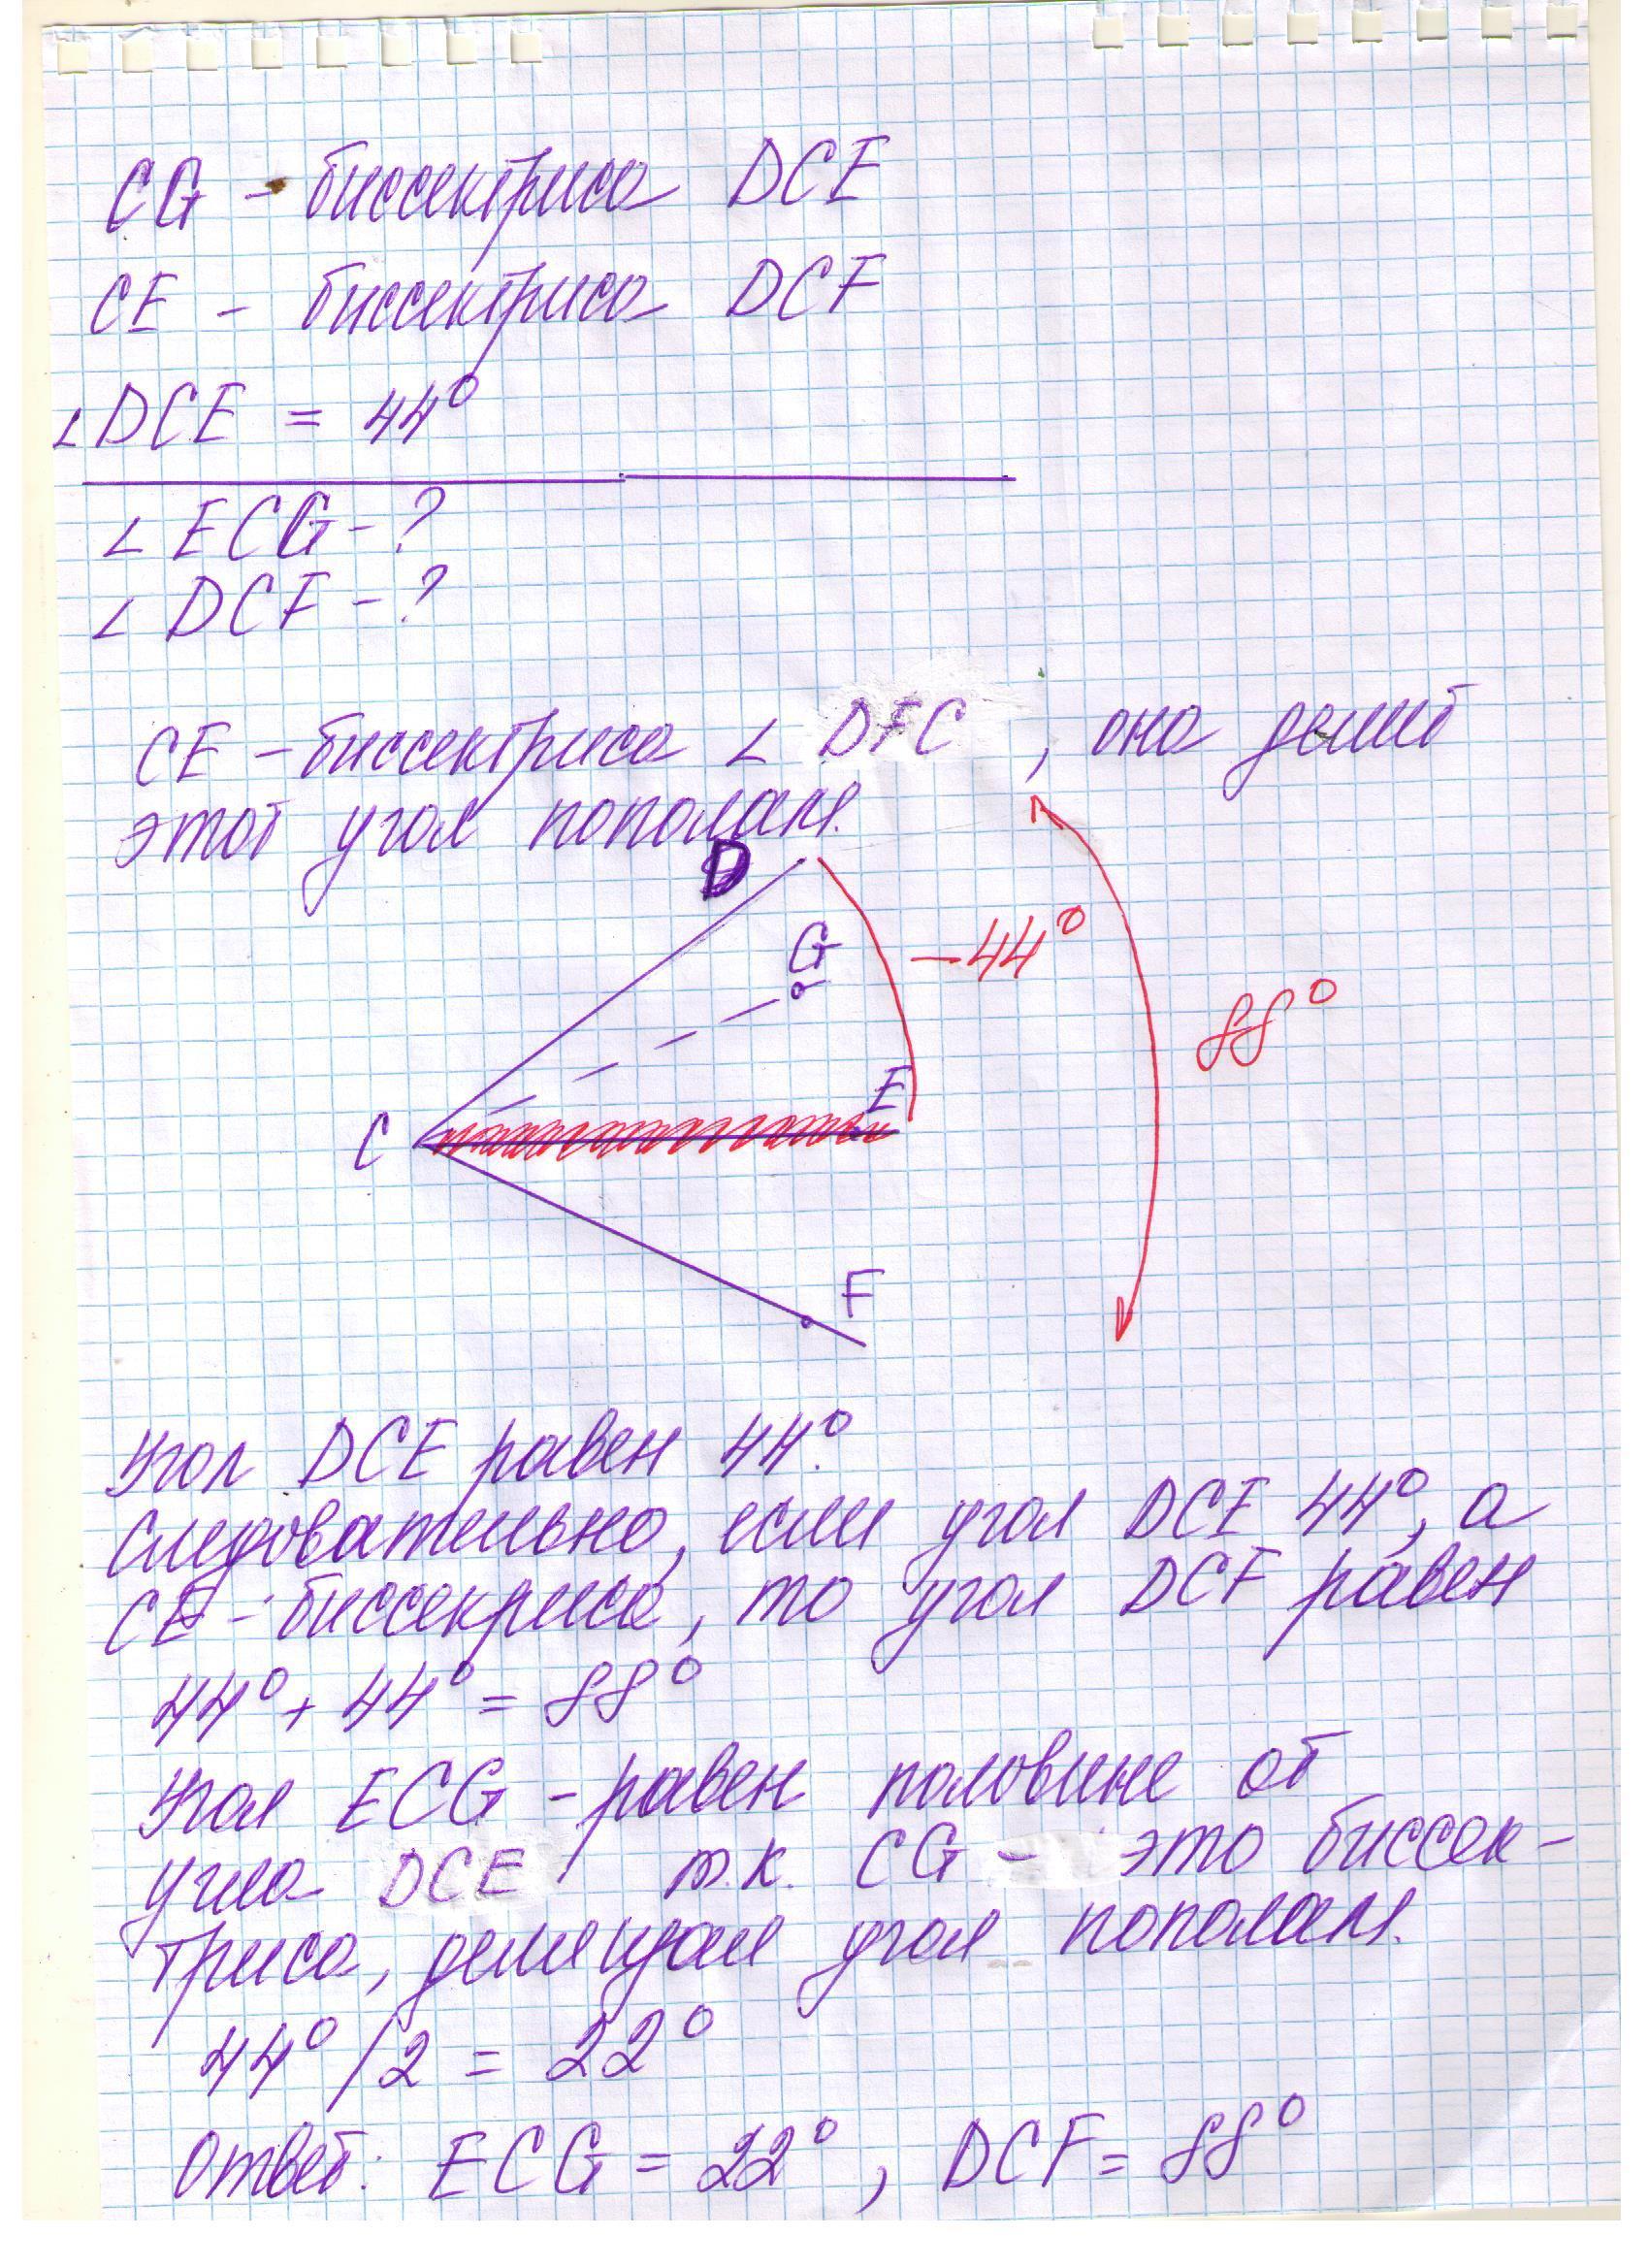 CG - биссектриса DCE
CE - биссектриса DCF
∠DCE = 44°
∠ ECG - ?
∠ DCF - ?
CE - биссектриса ∠ DFC , она делит
этот угол пополам.
D
G
- 44°
88°
E
C
F
Угол DCE равен 44°.
Следовательно, если угол DCE 44°, а
CE - биссекриса, то угол DCF равен
44° + 44° = 88°
Угол ECG - равен половине от
угла DCE т.к. CG - это биссек-
триса, делящая угол пополам.
44° / 2 = 22°
Ответ: ECG = 22° , DCF = 88°